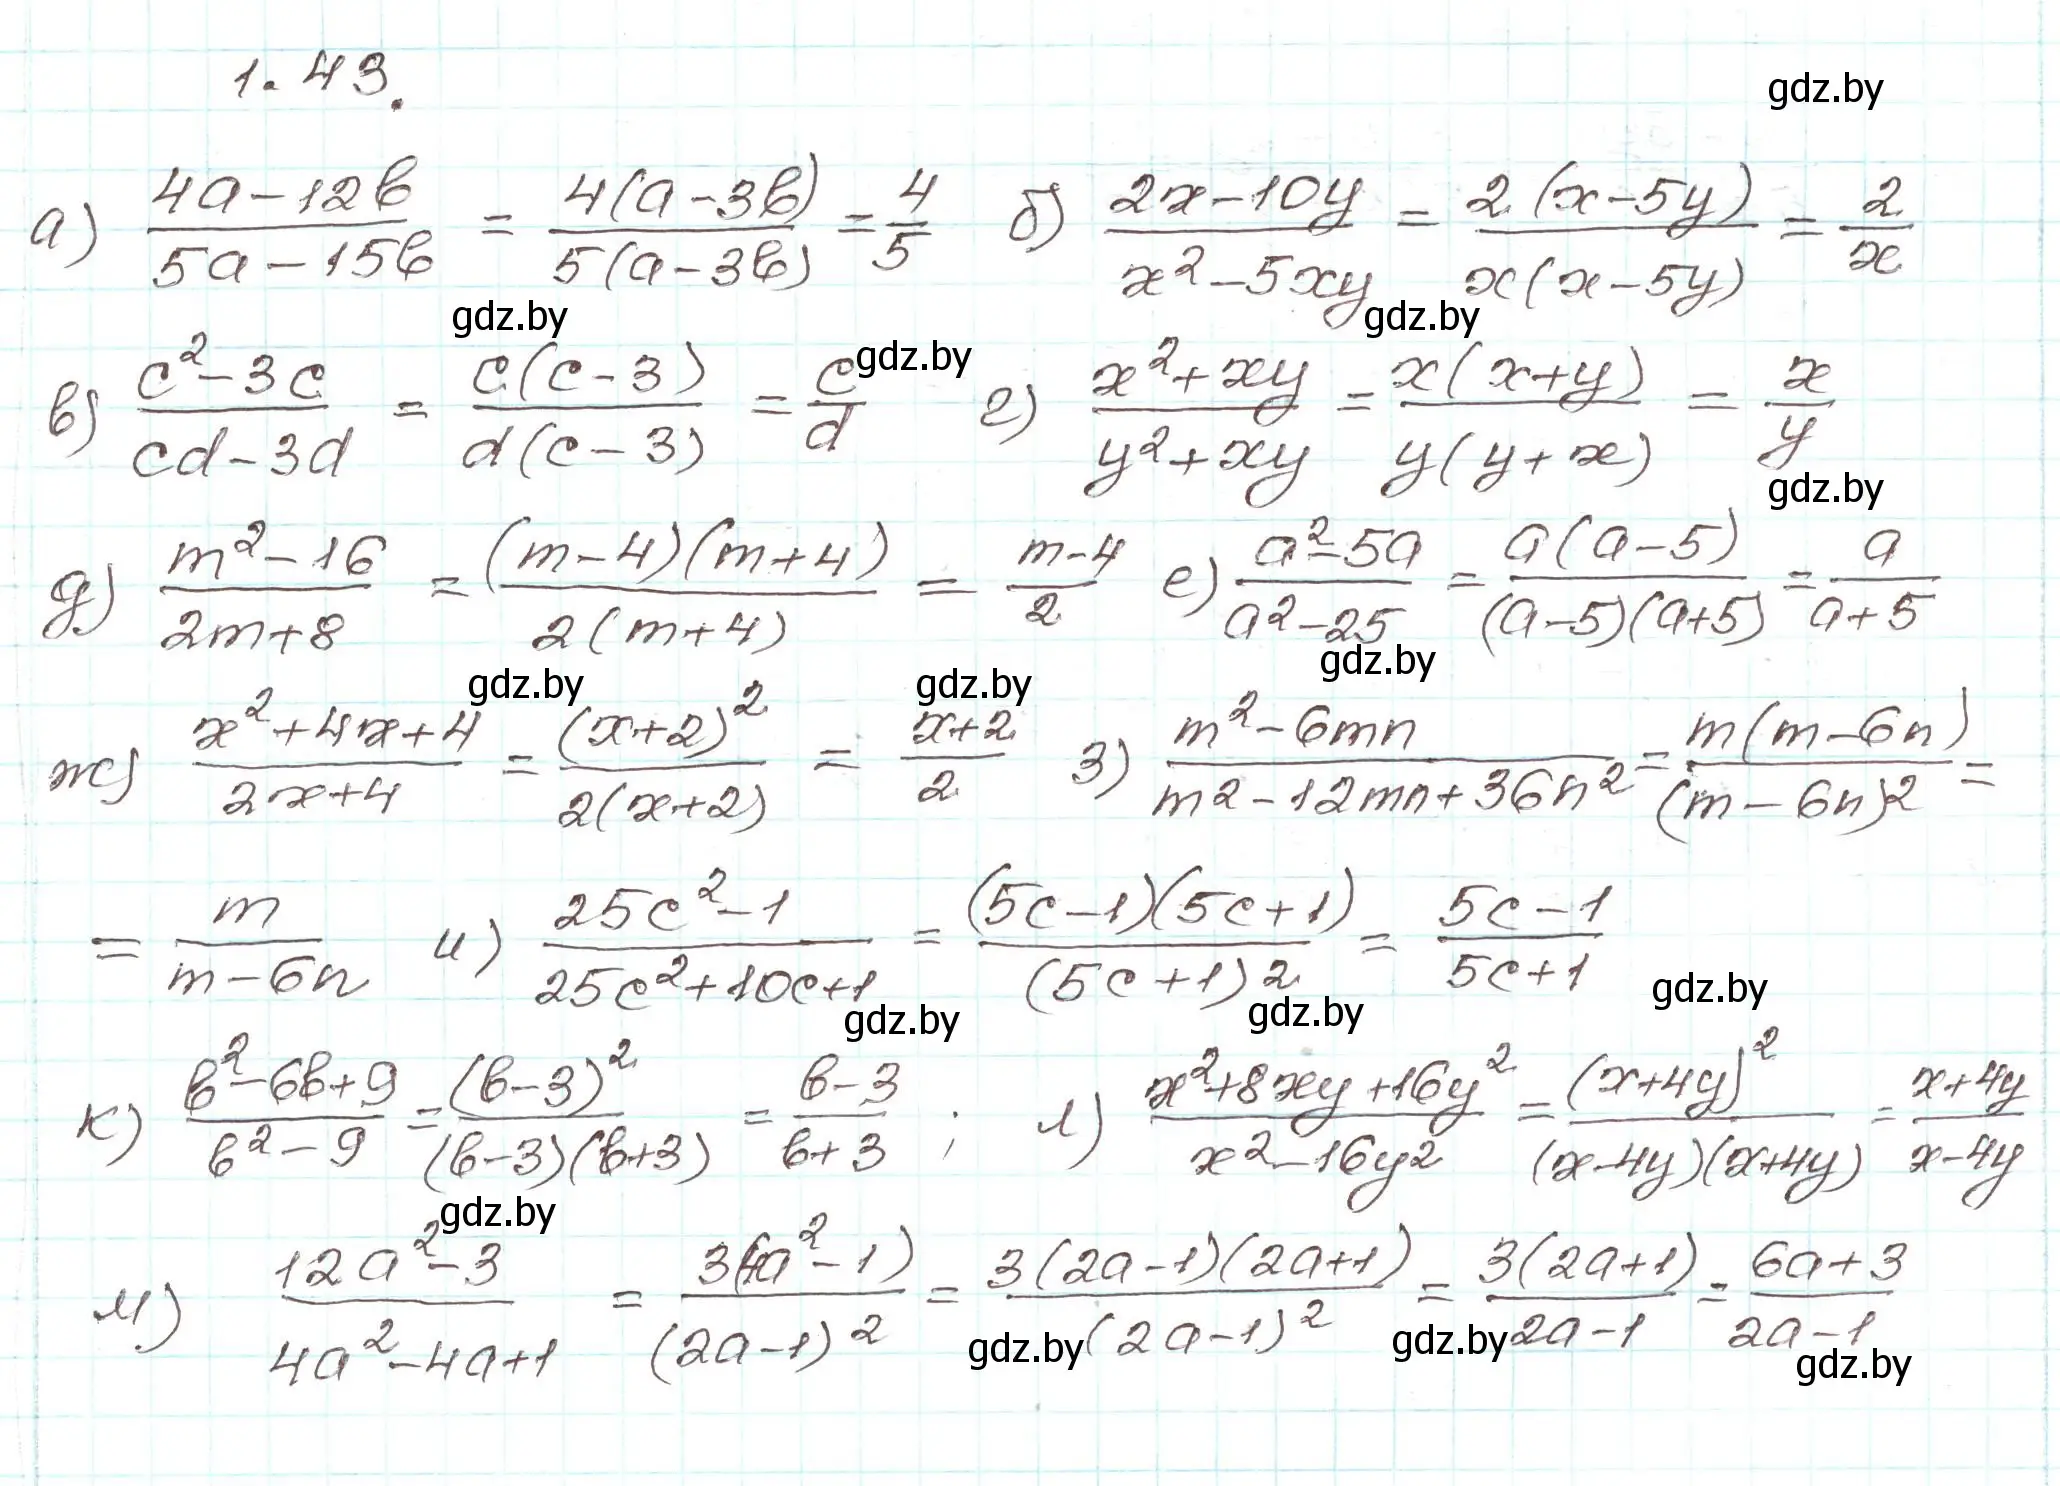 1.43.
gdz.by
а) (4a-12b)/(5a-15b) = 4(a-3b)/5(a-3b) = 4/5 б) (2x-10y)/(x²-5xy) = 2(x-5y)/x(x-5y) = 2/x
gdz.by gdz.by
gdz.by
в) (c²-3c)/(cd-3d) = c(c-3)/d(c-3) = c/d г) (x²+xy)/(y²+xy) = x(x+y)/y(y+x) = x/y
gdz.by
д) (m²-16)/(2m+8) = (m-4)(m+4)/2(m+4) = (m-4)/2 е) (a²-5a)/(a²-25) = a(a-5)/(a-5)(a+5) = a/(a+5)
gdz.by gdz.by gdz.by
ж) (x²+4x+4)/(2x+4) = (x+2)²/2(x+2) = (x+2)/2 з) (m²-6mn)/(m²-12mn+36n²) = m(m-6n)/(m-6n)² =
= m/(m-6n) и) (25c²-1)/(25c²+10c+1) = (5c-1)(5c+1)/(5c+1)² = (5c-1)/(5c+1)
gdz.by gdz.by gdz.by
к) (b²-6b+9)/(b²-9) = (b-3)²/(b-3)(b+3) = (b-3)/(b+3) ; л) (x²+8xy+16y²)/(x²-16y²) = (x+4y)²/(x-4y)(x+4y) = (x+4y)/(x-4y)
gdz.by
м) (12a²-3)/(4a²-4a+1) = 3(4a²-1)/(2a-1)² = 3(2a-1)(2a+1)/(2a-1)² = 3(2a+1)/(2a-1) = (6a+3)/(2a-1)
gdz.by gdz.by gdz.by